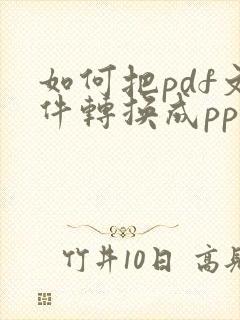 如何把pdf文
件轉換成pp
竹井10日 高